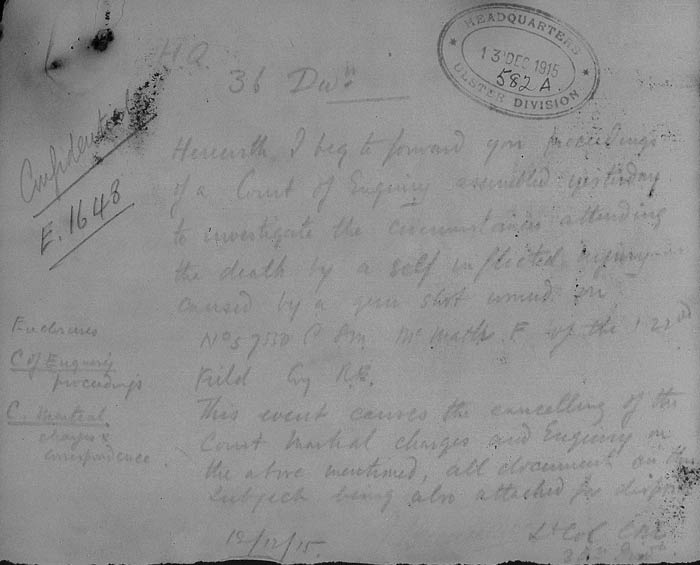 HEADQUARTERS
13 DEC 1915
582 A
ULSTER DIVISION
H.Q.
36 Divn.
Confidential
E. 1648
Herewith I beg to forward you proceedings
of a Court of Enquiry assembled yesterday
to investigate the circumstances attending
the death by a self inflected injury
caused by a gun shot wound on
No 57550 C Mc Math F of the 122nd
Field Coy R.E.
This event causes the cancelling of the
Court Martial charges and Enquiry on
the above mentioned, all documents on the
subject being also attached for
Enclosures
C of Enquiry
proceedings
C. Martial
charges &
correspondence
12/12/15.
Lt Col CRE
36th Divn